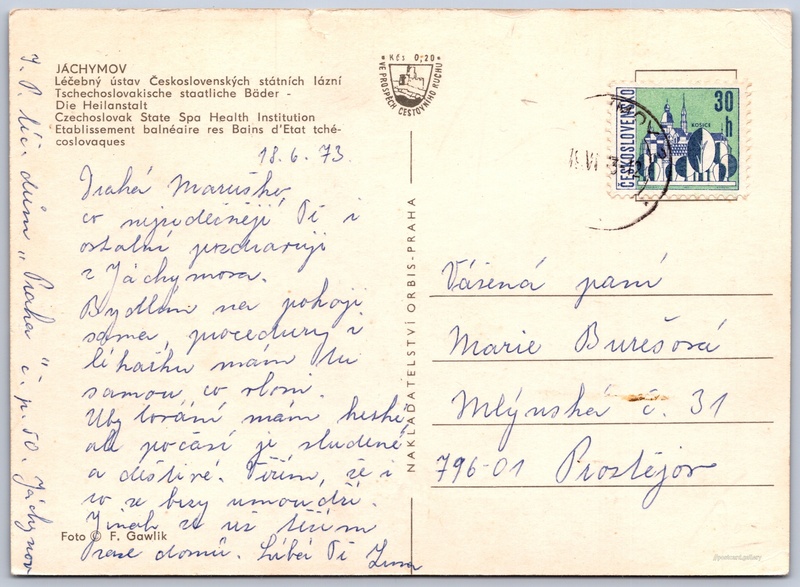 JÁCHYMOV
Léčebný ústav Československých státních lázní
Tschechoslovakische staatliche Bäder -
Die Heilanstalt
Czechoslovak State Spa Health Institution
Etablissement balnéaire res Bains d'Etat tché-
coslovaques
18.6.73.
Drahá Maruško,
co nejsrdečněji Tě i
ostatní pozdravuji
z Jáchymova.
Bydlím na pokoji
sama, procedury i
léčitku mám tu
samou, co vloni.
Ubytování mám hezké,
ale počasí je studené
a deštivé. Věřím, že i
to se brzy umoudří.
Jinak se už těším
zase domů. Líbá Tě
Foto © F. Gawlik
J. P. léč. dům "Praha" č. p. 50. Jáchymov
Kčs 0,20
VE PROSPĚCH CESTOVNÍHO RUCHU
NAKLADATELSTVÍ ORBIS-PRAHA
ČESKOSLOVENSKO
30 h
KOŠICE
Vážená paní
Marie Burešová
Mlýnská č. 31
796-01 Prostějov
postcard.gallery